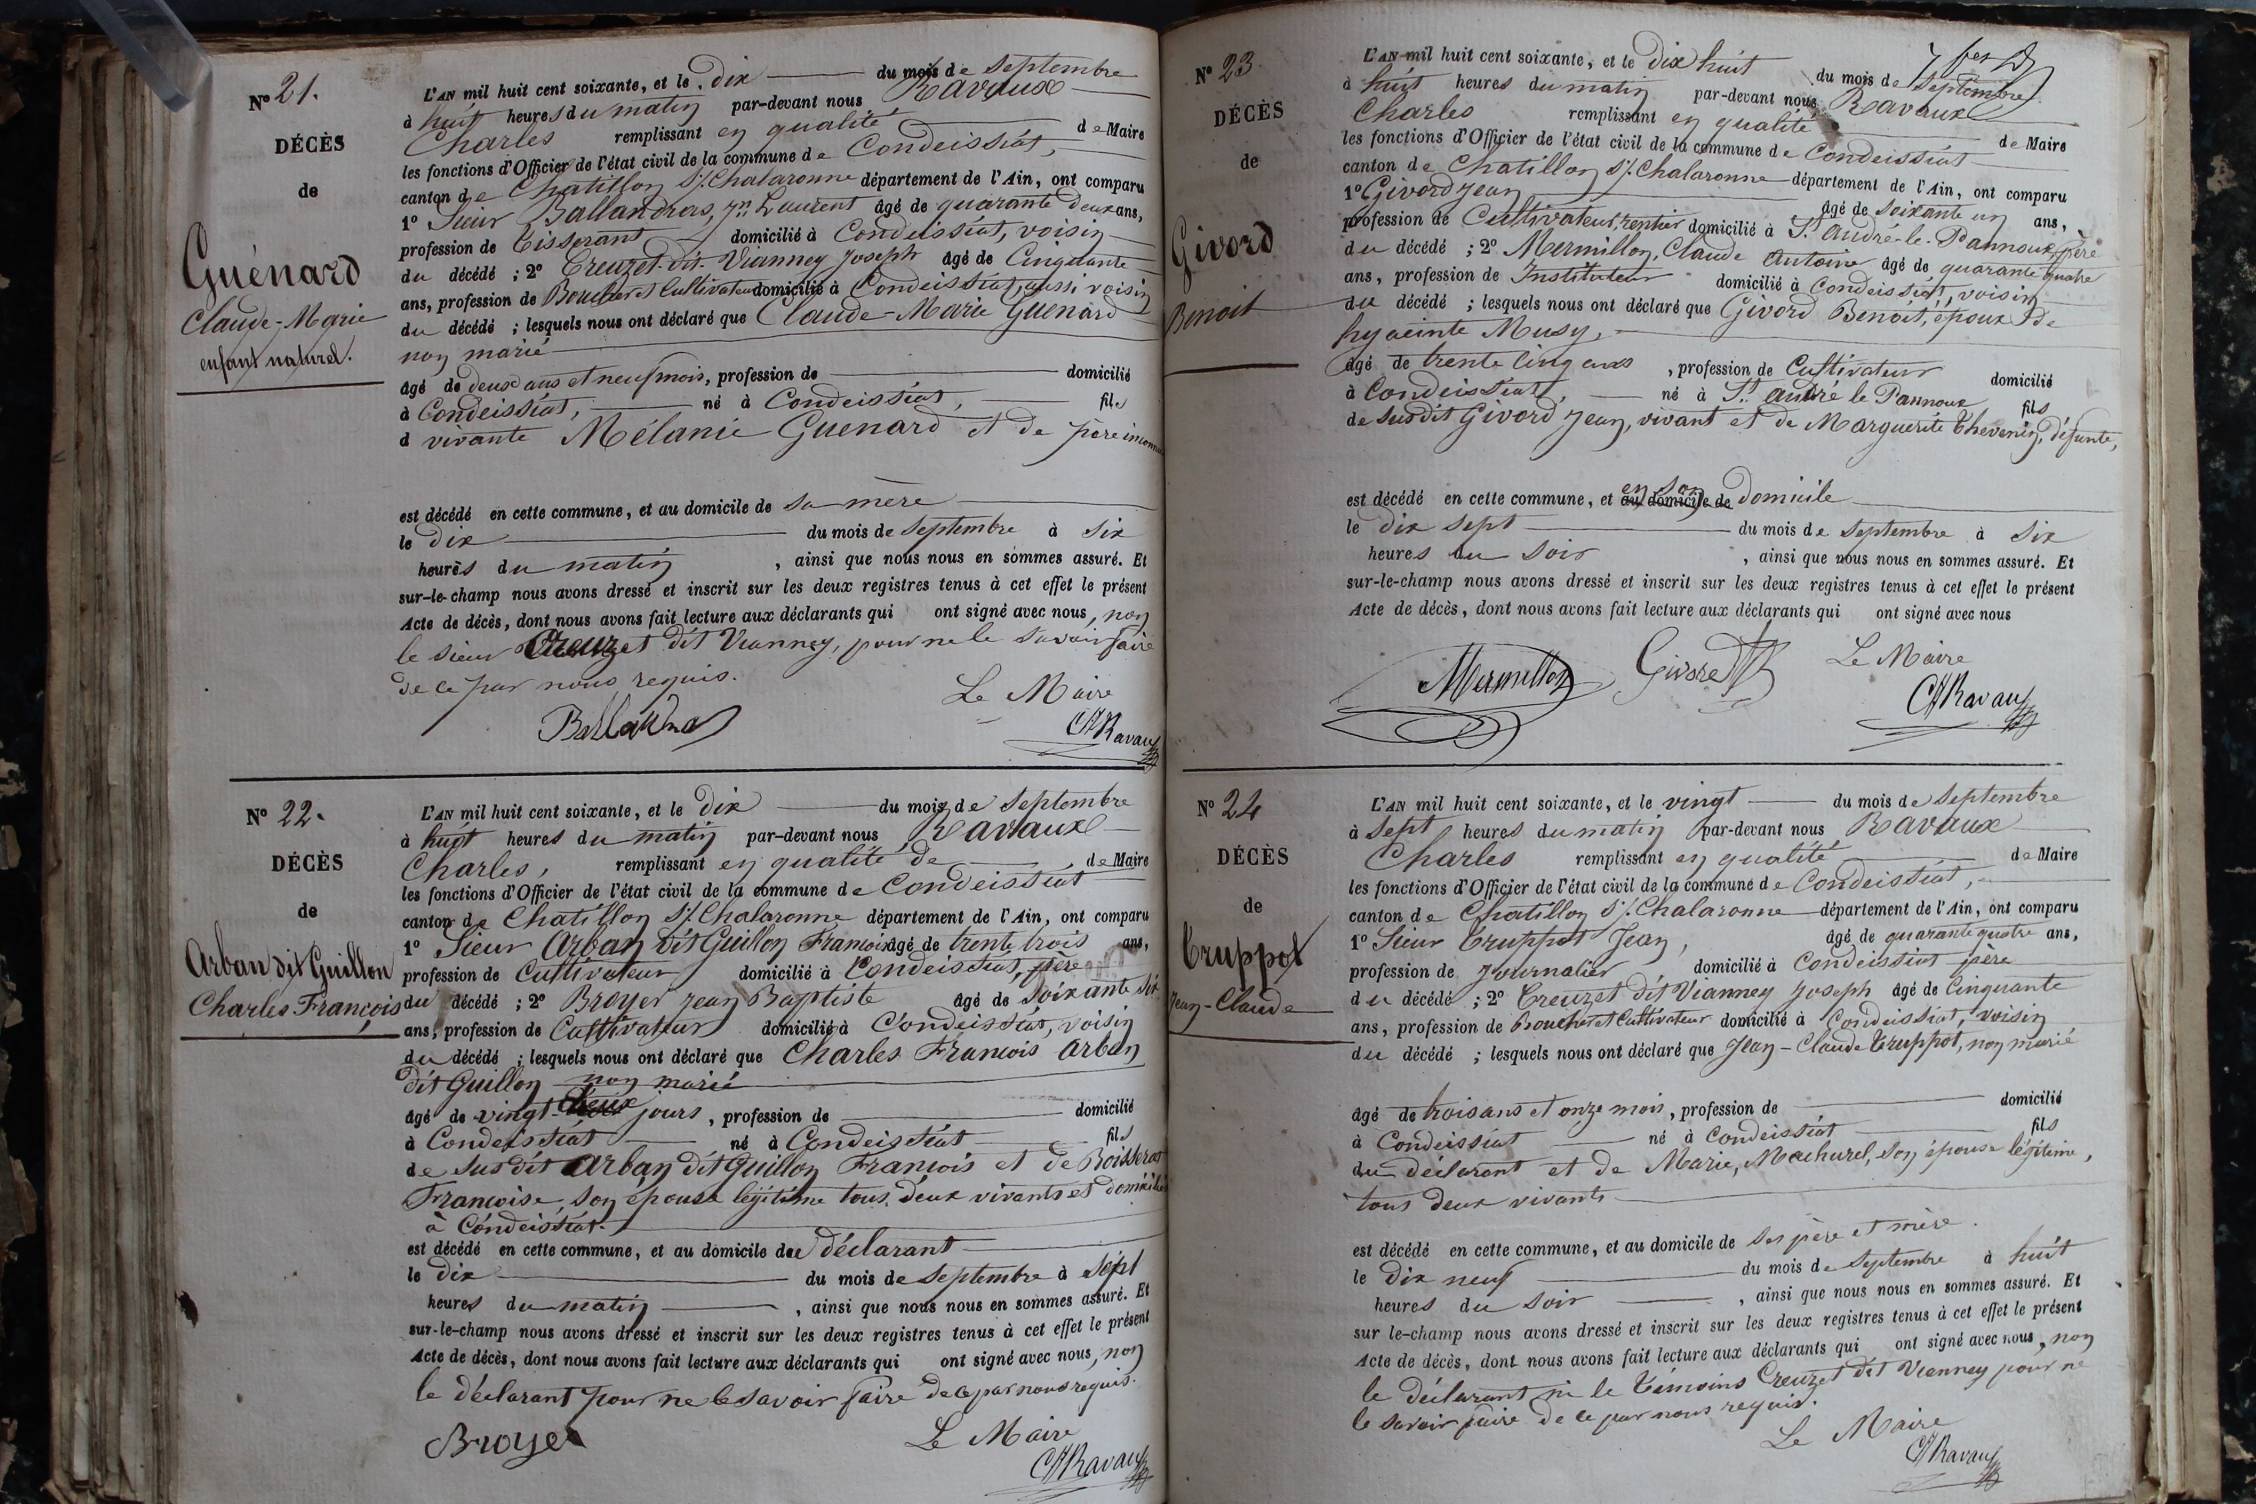 N° 21.
DÉCÈS
de
Guénard
Claude-Marie
enfant naturel.
L'AN mil huit cent soixante, et le Dix du mois de Septembre
à huit heures du matin par-devant nous Ravaux
Charles remplissant en qualité de Maire
les fonctions d'Officier de l'état civil de la commune de Condeissiat,
canton de Chatillon s/. Chalaronne département de l'Ain, ont comparu
1° Sieur Ballandras, Jn. Laurent âgé de quarante deux ans,
profession de Tisserant domicilié à Condeissiat, voisin
du décédé ; 2° Creuzet dit Vianney Joseph âgé de Cinquante
ans, profession de Boucher et Cultivateur domicilié à Condeissiat, aussi voisin
du décédé ; lesquels nous ont déclaré que Claude-Marie Guénard
non marié
âgé de deux ans et neuf mois, profession de domicilié
à Condeissiat, né à Condeissiat, fils
d vivante Mélanie Guenard et de père inconnu
est décédé en cette commune, et au domicile de sa mère
le Dix du mois de Septembre à Six
heures du matin, ainsi que nous nous en sommes assuré. Et
sur-le-champ nous avons dressé et inscrit sur les deux registres tenus à cet effet le présent
Acte de décès, dont nous avons fait lecture aux déclarants qui ont signé avec nous, non
le sieur Creuzet dit Vianney, pour ne le savoir faire
de ce par nous requis.
Le Maire
Ballandras
Ch Ravaux
N° 22.
DÉCÈS
de
Arban dit Guillon
Charles François
L'AN mil huit cent soixante, et le Dix du mois de Septembre
à huit heures du matin par-devant nous Ravaux
Charles, remplissant en qualité de de Maire
les fonctions d'Officier de l'état civil de la commune de Condeissiat
canton de Chatillon s/. Chalaronne département de l'Ain, ont comparu
1° Sieur Arban dit Guillon François âgé de trente trois ans,
profession de Cultivateur domicilié à Condeissiat, père
du décédé ; 2° Broyer Jean Baptiste âgé de Soixante Six
ans, profession de Cultivateur domicilié à Condeissiat, voisin
du décédé ; lesquels nous ont déclaré que Charles François Arban
dit Guillon non marié
âgé de vingt-deux jours, profession de domicilié
à Condeissiat né à Condeissiat fils
de Susdit Arban dit Guillon François et de Boisserat
Françoise, son épouse légitime tous deux vivants et domiciliés
à Condeissiat.
est décédé en cette commune, et au domicile du déclarant
le Dix du mois de Septembre à Sept
heures du matin, ainsi que nous nous en sommes assuré. Et
sur-le-champ nous avons dressé et inscrit sur les deux registres tenus à cet effet le présent
Acte de décès, dont nous avons fait lecture aux déclarants qui ont signé avec nous, non
le déclarant pour ne le savoir faire de ce par nous requis.
Le Maire
Broyer
Ch Ravaux
N° 23
DÉCÈS
de
Givord
Benoit
L'AN mil huit cent soixante, et le Dix huit du mois de Septembre
à huit heures du matin par-devant nous Ravaux
Charles remplissant en qualité de Maire
les fonctions d'Officier de l'état civil de la commune de Condeissiat
canton de Chatillon s/. Chalaronne département de l'Ain, ont comparu
1° Givord Jean âgé de Soixante un ans,
profession de Cultivateur, rentier domicilié à St. André-le-Pannoux, père
du décédé ; 2° Mermillon, Claude Antoine âgé de quarante quatre
ans, profession de Instituteur domicilié à Condeissiat, voisin
du décédé ; lesquels nous ont déclaré que Givord Benoit, époux de
hyacinte Musy,
âgé de trente Cinq ans, profession de Cultivateur domicilié
à Condeissiat, né à St. André le Pannoux fils
de Susdit Givord Jean, vivant et de Marguerite Thevenin, défunte,
est décédé en cette commune, et en son au domicile de Domicile
le dix sept du mois de Septembre à Six
heures du Soir, ainsi que nous nous en sommes assuré. Et
sur-le-champ nous avons dressé et inscrit sur les deux registres tenus à cet effet le présent
Acte de décès, dont nous avons fait lecture aux déclarants qui ont signé avec nous
Le Maire
Mermillon Givord
Ch Ravaux
N° 24
DÉCÈS
de
Truppot
Jean-Claude
L'AN mil huit cent soixante, et le vingt du mois de Septembre
à Sept heures du matin par-devant nous Ravaux
Charles remplissant en qualité de Maire
les fonctions d'Officier de l'état civil de la commune de Condeissiat,
canton de Chatillon s/. Chalaronne département de l'Ain, ont comparu
1° Sieur Truppot Jean, âgé de quarante quatre ans,
profession de Journalier domicilié à Condeissiat père
du décédé ; 2° Creuzet dit Vianney Joseph âgé de Cinquante
ans, profession de Boucher et Cultivateur domicilié à Condeissiat, voisin
du décédé ; lesquels nous ont déclaré que Jean-Claude Truppot, non marié
âgé de trois ans et onze mois, profession de domicilié
à Condeissiat né à Condeissiat fils
du déclarant et de Marie, Machurel, son épouse légitime,
tous deux vivants
est décédé en cette commune, et au domicile de ses père et mère.
le Dix neuf du mois de Septembre à huit
heures du Soir, ainsi que nous nous en sommes assuré. Et
sur le-champ nous avons dressé et inscrit sur les deux registres tenus à cet effet le présent
Acte de décès, dont nous avons fait lecture aux déclarants qui ont signé avec nous, non
le déclarant ni le témoins Creuzet dit Vianney pour ne
le savoir faire de ce par nous requis.
Le Maire
Ch Ravaux